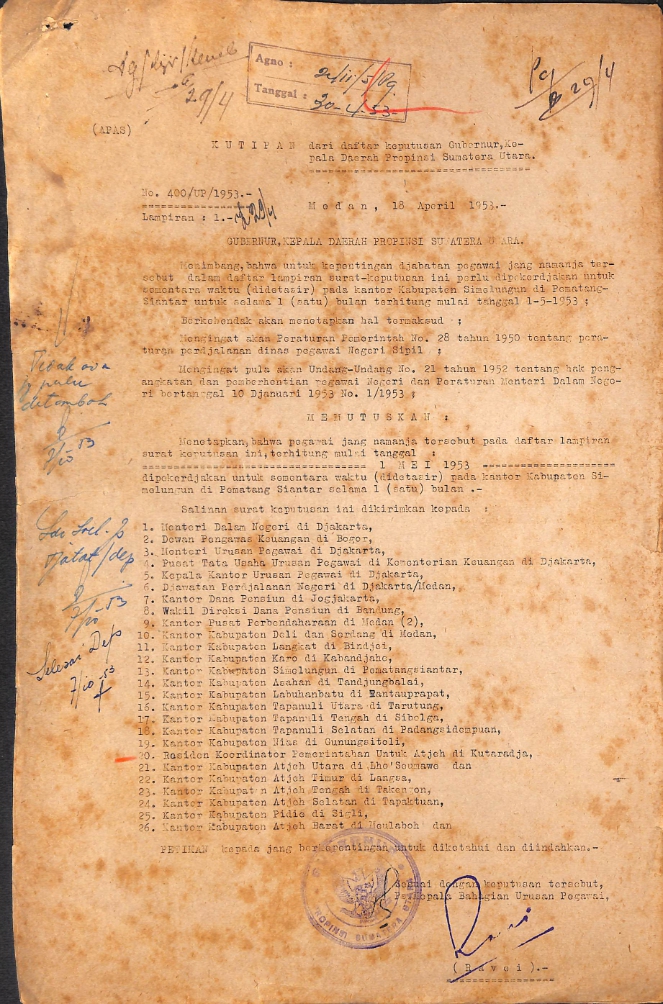 Agno :
Tanggal : 30-4-53-
29/4
29/4
(APAS)
K U T I P A N dari daftar keputusan Gubernur,Ke-
pala Daerah Propinsi Sumatera Utara.
No. 400/UP/1953.-
M e d a n , 18 April 1953.-
Lampiran : 1.-
GUBERNUR,KEPALA DAERAH PROPINSI SUMATERA UTARA.
Menimbang,bahwa untuk kepentingan djabatan pegawai jang namanja ter-
sebut dalam daftar lampiran surat-keputusan ini perlu dipekerdjakan untuk
sementara waktu (didetasir) pada kantor Kabupaten Simelungun di Pematang-
Siantar untuk selama 1 (satu) bulan terhitung mulai tanggal 1-5-1953 ;
Berkehendak akan menetapkan hal termaksud ;
Mengingat akan Peraturan Pemerintah No. 28 tahun 1950 tentang pera-
turan perdjalanan dinas pegawai Negeri Sipil ;
Mengingat pula akan Undang-Undang No. 21 tahun 1952 tentang hak peng-
angkatan dan pemberhentian pegawai Negeri dan Peraturan Menteri Dalam Nege-
ri bertanggal 10 Djanuari 1953 No. 1/1953 ;
M E M U T U S K A N :
Menetapkan,bahwa pegawai jang namanja tersebut pada daftar lampiran
surat keputusan ini,terhitung mulai tanggal :
1 MEI 1953
dipekerdjakan untuk sementara waktu (didetasir) pada kantor Kabupaten Si-
melungun di Pematang Siantar selama 1 (satu) bulan .-
Salinan surat keputusan ini dikirimkan kepada :
1. Menteri Dalam Negeri di Djakarta,
2. Dewan Pengawas Keuangan di Bogor,
3. Menteri Urusan Pegawai di Djakarta,
4. Pusat Tata Usaha Urusan Pegawai di Kementerian Keuangan di Djakarta,
5. Kepala Kantor Urusan Pegawai di Djakarta,
6. Djawatan Perdjalanan Negeri di Djakarta/Medan,
7. Kantor Dana Pensiun di Jogjakarta,
8. Wakil Direksi Dana Pensiun di Bandung,
9. Kantor Pusat Perbendaharaan di Medan (2),
10. Kantor Kabupaten Deli dan Serdang di Medan,
11. Kantor Kabupaten Langkat di Bindjei,
12. Kantor Kabupaten Karo di Kabandjahe,
13. Kantor Kabupaten Simelungun di Pematangsiantar,
14. Kantor Kabupaten Asahan di Tandjungbalai,
15. Kantor Kabupaten Labuhanbatu di Rantauprapat,
16. Kantor Kabupaten Tapanuli Utara di Tarutung,
17. Kantor Kabupaten Tapanuli Tengah di Sibolga,
18. Kantor Kabupaten Tapanuli Selatan di Padangsidempuan,
19. Kantor Kabupaten Nias di Gunungsitoli,
20. Residen Koordinator Pemerintahan Untuk Atjeh di Kutaradja,
21. Kantor Kabupaten Atjeh Utara di Lho'Seumawe dan
22. Kantor Kabupaten Atjeh Timur di Langsa,
23. Kantor Kabupaten Atjeh Tengah di Takengon,
24. Kantor Kabupaten Atjeh Selatan di Tapaktuan,
25. Kantor Kabupaten Pidie di Sigli,
26. Kantor Kabupaten Atjeh Barat di Meulaboh dan
PETIKAN kepada jang berkepentingan untuk diketahui dan diindahkan.-
Sesuai dengan keputusan tersebut,
Kepala Bahagian Urusan Pegawai,
( R a v o i ).-
Tidak
ditambah
7/10 53
Selesai Dep
7/10-53